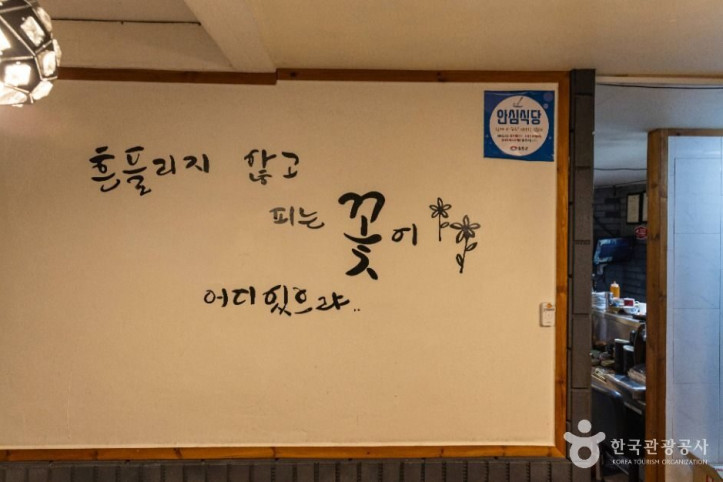 흔들리지 않고
피는 꽃이
어디있으랴..
안심식당
한국관광공사
KOREA TOURISM ORGANIZATION